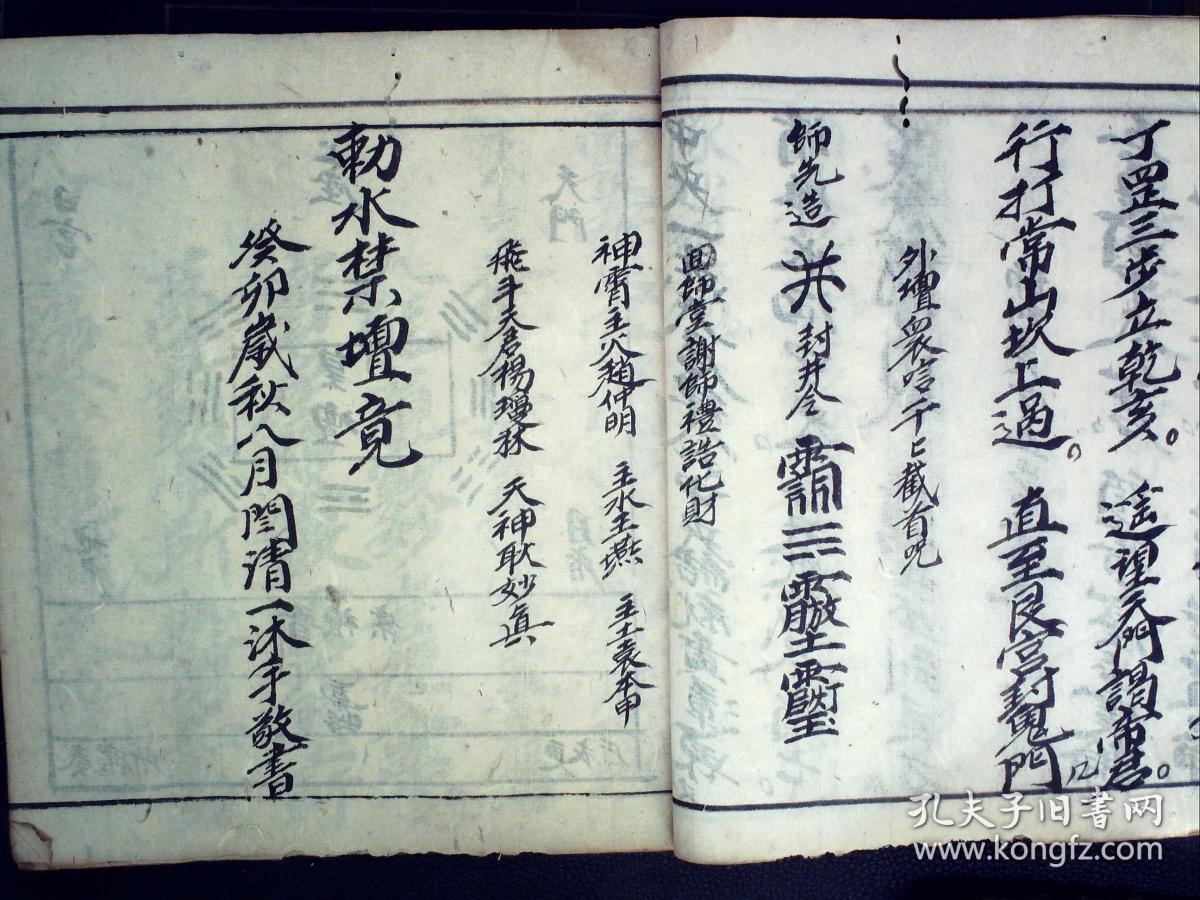 丁罡三步立乾亥。遥望天門謁帝君。
行打常山坎上過。直至艮宫封鬼門
外壇衆唸 截首咒
師先造 封井仝
回師堂謝師禮誥化財
神霄主火趙仲明 主水王燕 主土袁本甲
飛斗天君楊瓊林 天神耿妙真
勅水禁壇竟
癸卯歲秋八月閆清一沐手敬書
孔夫子旧书网
www.kongfz.com